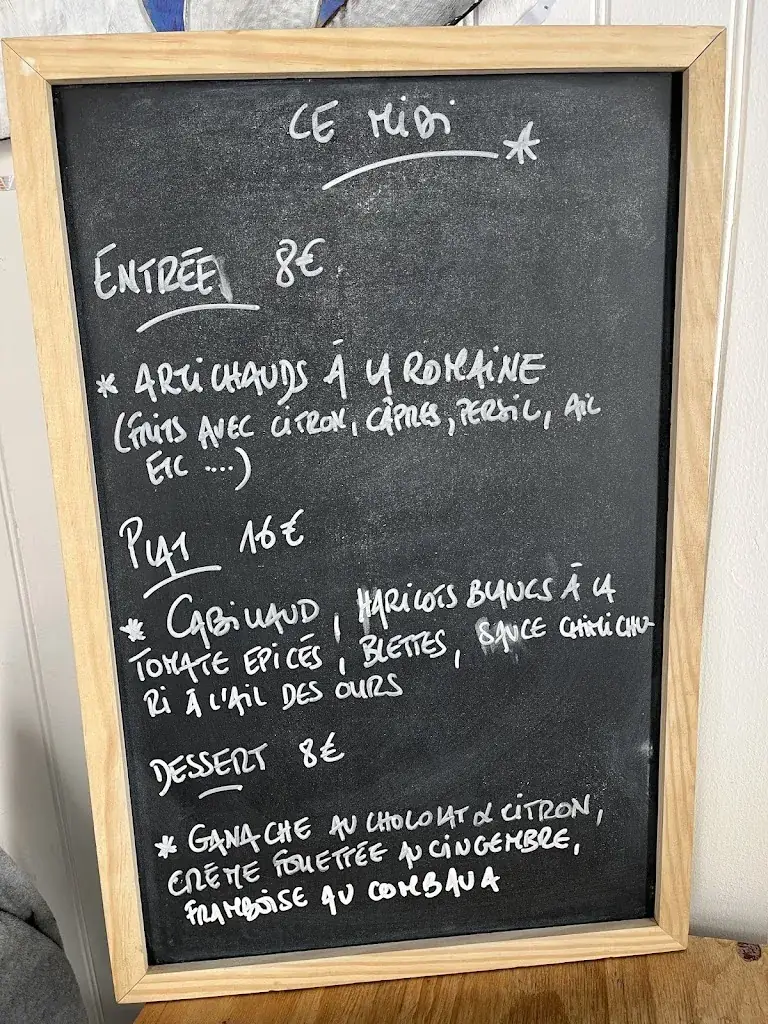 CE MIDI *
ENTRÉE 8€
* ARTICHAUDS À LA ROMAINE
(FRITS AVEC CITRON, CÂPRES, PERSIL, AIL
ETC ....)
PLAT 16€
* CABILLAUD, HARICOTS BLANCS À LA
TOMATE EPICÉS, BLETTES, SAUCE CHIMICHU-
RI À L'AIL DES OURS
DESSERT 8€
* GANACHE AU CHOCOLAT & CITRON,
CRÈME FOUETTÉE AU GINGEMBRE,
FRAMBOISE AU COMBAVA